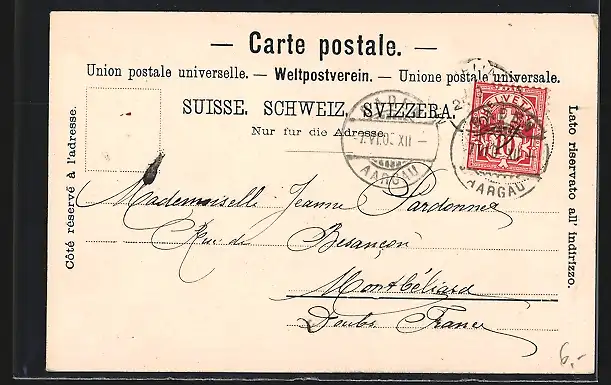 — Carte postale. —
Union postale universelle. — Weltpostverein. — Unione postale universale.
SUISSE. SCHWEIZ. SVIZZERA.
Nur für die Adresse.
Côté réservé à l'adresse.
Lato riservato all' indirizzo.
HELVETIA
10
AARAU
-7.VI.05.XII-
AARGAU
AARGAU
Mademoiselle Jeanne Pardonnet
Rue de Besançon
Montbéliard
Doubs France
6.-